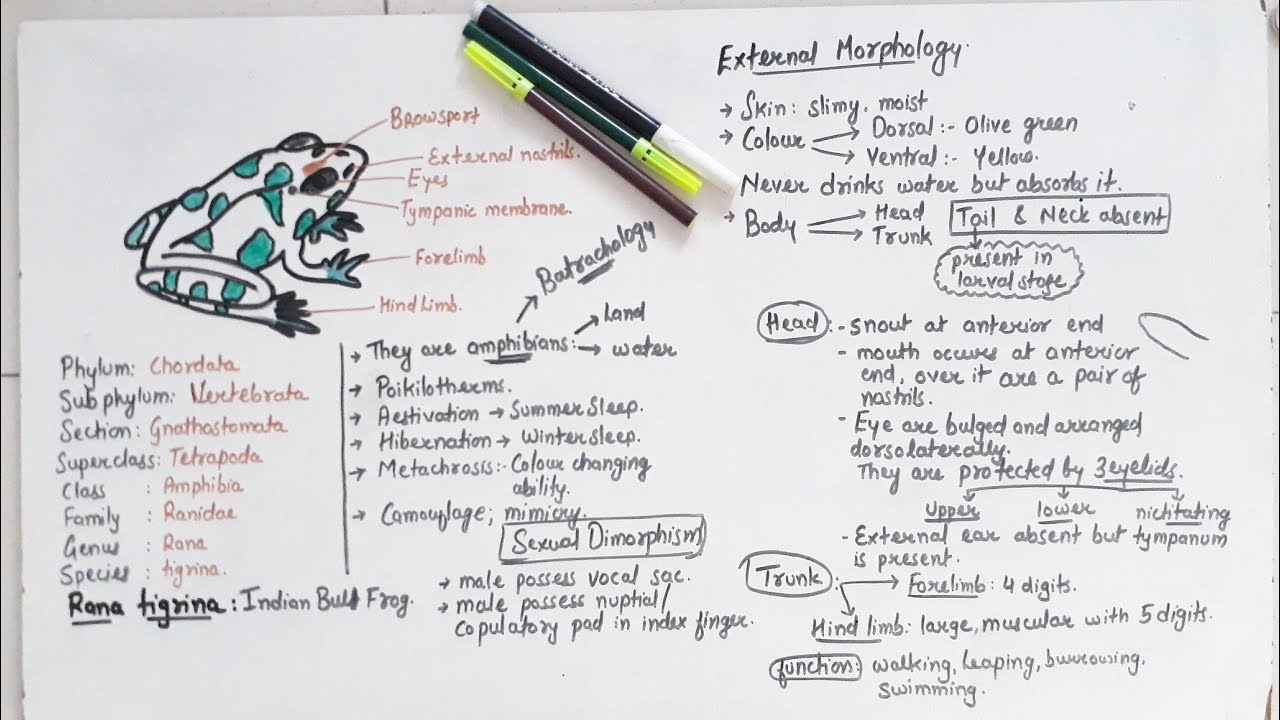 Browsport
External nostrils.
Eyes
Tympanic membrane.
Forelimb
Hind Limb.
Phylum: Chordata
Sub phylum: Vertebrata
Section: Gnathostomata
Superclass: Tetrapoda
Class : Amphibia
Family : Ranidae
Genus : Rana
Species : tigrina.
Rana tigrina: Indian Bull Frog.
Batrachology
→ They are amphibians: → Land
→ water
→ Poikilotherms.
→ Aestivation → Summer Sleep.
→ Hibernation → Winter sleep.
→ Metachrosis:- Colour changing
ability.
→ Camouflage; mimicry.
Sexual Dimorphism
→ male possess vocal sac.
→ male possess nuptial/
copulatory pad in index finger.
External Morphology.
→ Skin: slimy. moist
→ Colour → Dorsal:- Olive green
→ Ventral:- Yellow.
Never drinks water but absorbs it.
→ Body → Head
→ Trunk
Tail & Neck absent
present in
larval stage
Head:- Snout at anterior end
- mouth occurs at anterior
end, over it are a pair of
nostrils.
- Eye are bulged and arranged
dorsolaterally.
They are protected by 3 eyelids.
upper lower nictitating
- External ear absent but tympanum
is present.
Trunk: → Forelimb: 4 digits.
Hind limb: large, muscular with 5 digits.
function: walking, leaping, burrowing.
swimming.